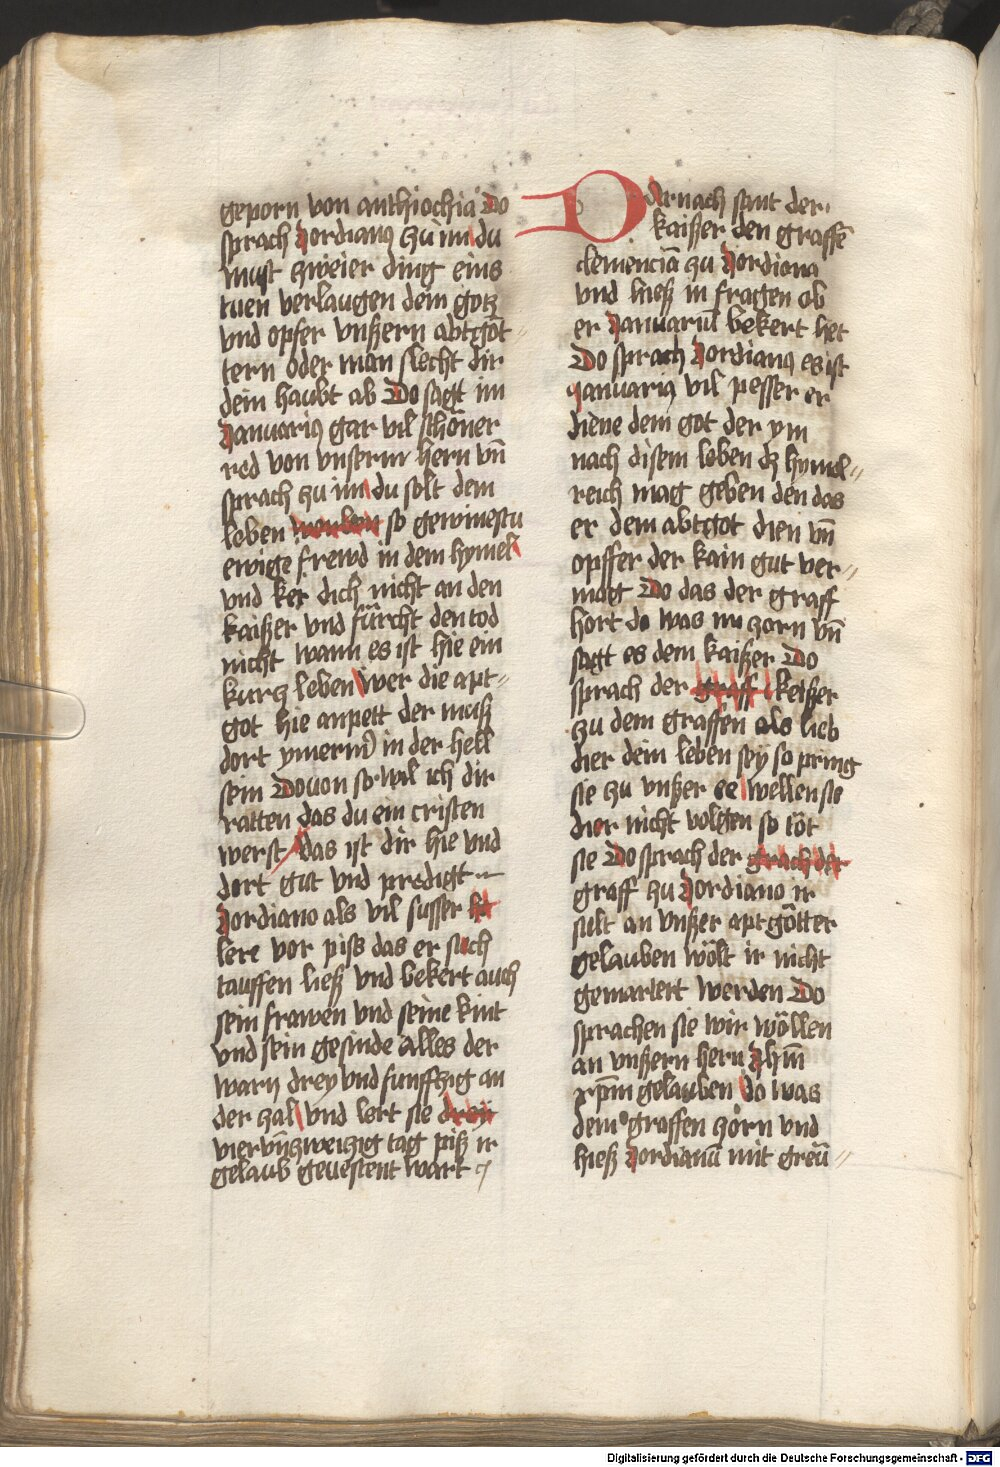 geporn von anthiochia Do
sprach Jordianus zu im du
must zweier ding eins
tuen verlaugen dem gotz
vnd opfer vnßern abtgöt-
tern oder man slecht dir
dein haubt ab Do sagt im
Januarius gar vil schöner
red von vnserm hern vn̄
sprach zu im du solt dem
leben so gewinestu
ewige frewd in dem hymel
vnd ker dich nicht an den
kaißer vnd fürcht den tod
nicht wann es ist hie ein
kurcz leben wer die apt-
got hie anpett der muß
dort ymerm̄ in der hell
sein Douon so wil ich dir
ratten das du ein cristen
werst das ist dir hie vnd
dort gut vnd predigt
Jordiano als vil susser
lere vor piss das er sich
tauffen ließ vnd bekert auch
sein frawen vnd seine kint
vnd sein gesinde alles der
warn drey vnd funffzig an
der zal vnd lert sie
vier vn̄ zweizig tag piß ir
gelaub geuestent wart
Darnach sant der
kaißer den graffē
clemenciā zu Jordiano
vnd hieß in fragen ob
er Januariū bekert het
Do sprach Jordianus es ist
Januarius vil pesser er
diene dem got der ym
nach disem leben dz hymel-
reich mag geben den das
er dem abtgot dien vn̄
opffer der kain gut ver-
mag Do das der graff
hort do was im zorn vn̄
sagt es dem kaißer Do
sprach der graff keißer
zu dem graffen als lieb
dier dein leben sey so pring
sie zu vnßer ee wellen sie
dier nicht volgen so töt
sie Do sprach der grach der
graff zu Jordiano ir
sült an vnßer aptgötter
gelauben wölt ir nicht
gemartert werden Do
sprachen sie wir wöllen
an vnßern hern Jhm̄
xp̄m gelauben do was
dem graffen zorn vnd
hieß Jordianū mit greū-